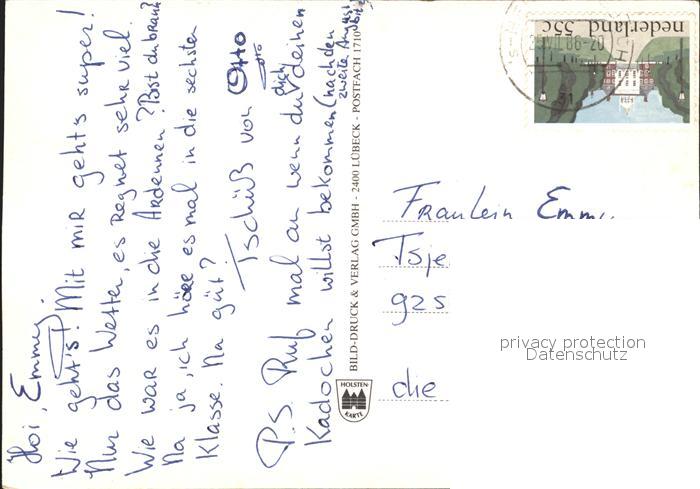 Hoi, Emmy.
Wie geht's? Mit mir geht's super!
Nur das Wetter, es regnet sehr viel.
Wie war es in die Ardennen?
Na ja, ich höre es mal in die sechsten
Klasse. Na gut?
Tschüß von Otto
P.S. Ruf mich mal an wenn du deinen
Kadochen willst bekommen (nach den
zweite August
BILD-DRUCK & VERLAG GMBH - 2400 LÜBECK - POSTFACH 1710
HOLSTEN-
KARTE
nederland
55c
VII.86-20
31
Fraulein Emmy
Tsje
gzs
die
privacy protection
Datenschutz